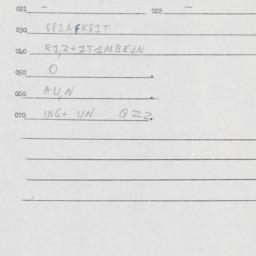 021 — 022 —
030 G81AFK81T
040 R1,2+1T1MBEJN
050 O
060 AU,N
070 ING+ UN QZZ